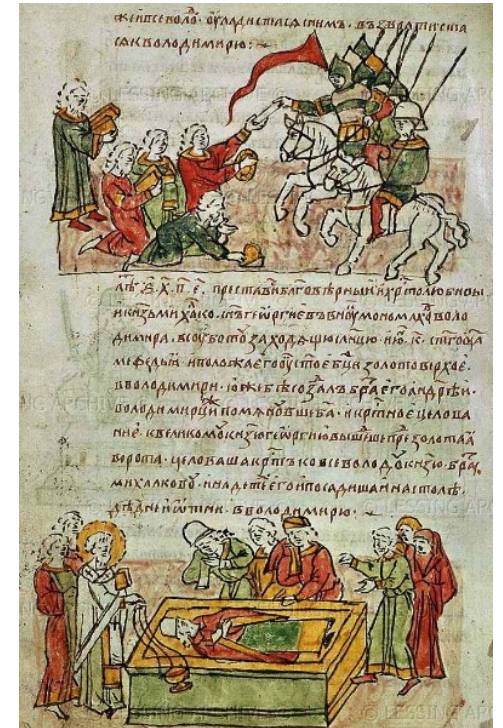 жеивсеволо. оуладистасѧснимъ. възвратиста
сѧкволодимирю:
лѣ ҂ѕ. х. п. е. преставибл҃говѣрныиихр҃толюбивы
икнзьмихако. сн҃ъгеѡргиевъвноумономахѡволо
димира. всоуботозаходѧщюслнцю. ию. к. ст҃гоѿца
мефедьꙗ. иположаегооустоебцизолотоверхое.
вволодимири. южебѣсозалъбраегоандрѣи.
володимирциипомѧновшеба. икртноецелова
ние. квеликомоукнзюгеѡргиювышешепрезолотаа
ворота. целовашакртъковсеволодоукнзю. бра
михалковоу. инадетиегоипосадишаинастолѣ.
дѣднеиѿтни. вволодимирю.
© LESSING ARCHIVE